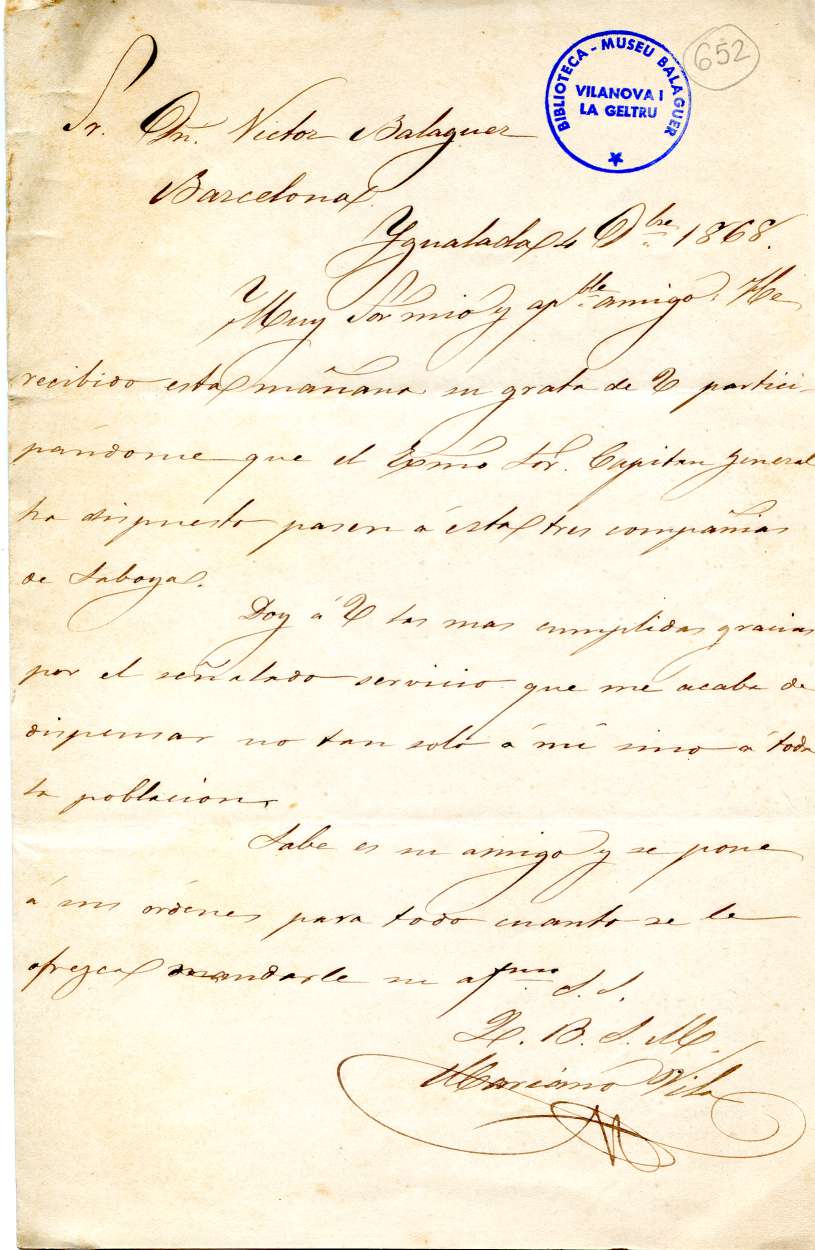 652
BIBLIOTECA - MUSEU BALAGUER
VILANOVA I
LA GELTRU
Sr. Dn. Victor Balaguer
Barcelona.
Ygualada 4 Dbre 1868.
Muy Sor mio y apble amigo: He
recibido esta mañana su grata de V partici-
pándome que el Exmo Sor. Capitan General
ha dispuesto pasen á esta tres compañias
de Saboya.
Doy á V las mas cumplidas gracias
por el señalado servicio que me acaba de
dispensar no tan solo á mi sino á toda
la poblacion.
Sabe es su amigo y se pone
á sus órdenes para todo cuanto se le
ofrezca mandarle su afmo S. S.
Q. B. S. M.
Mariano Vila